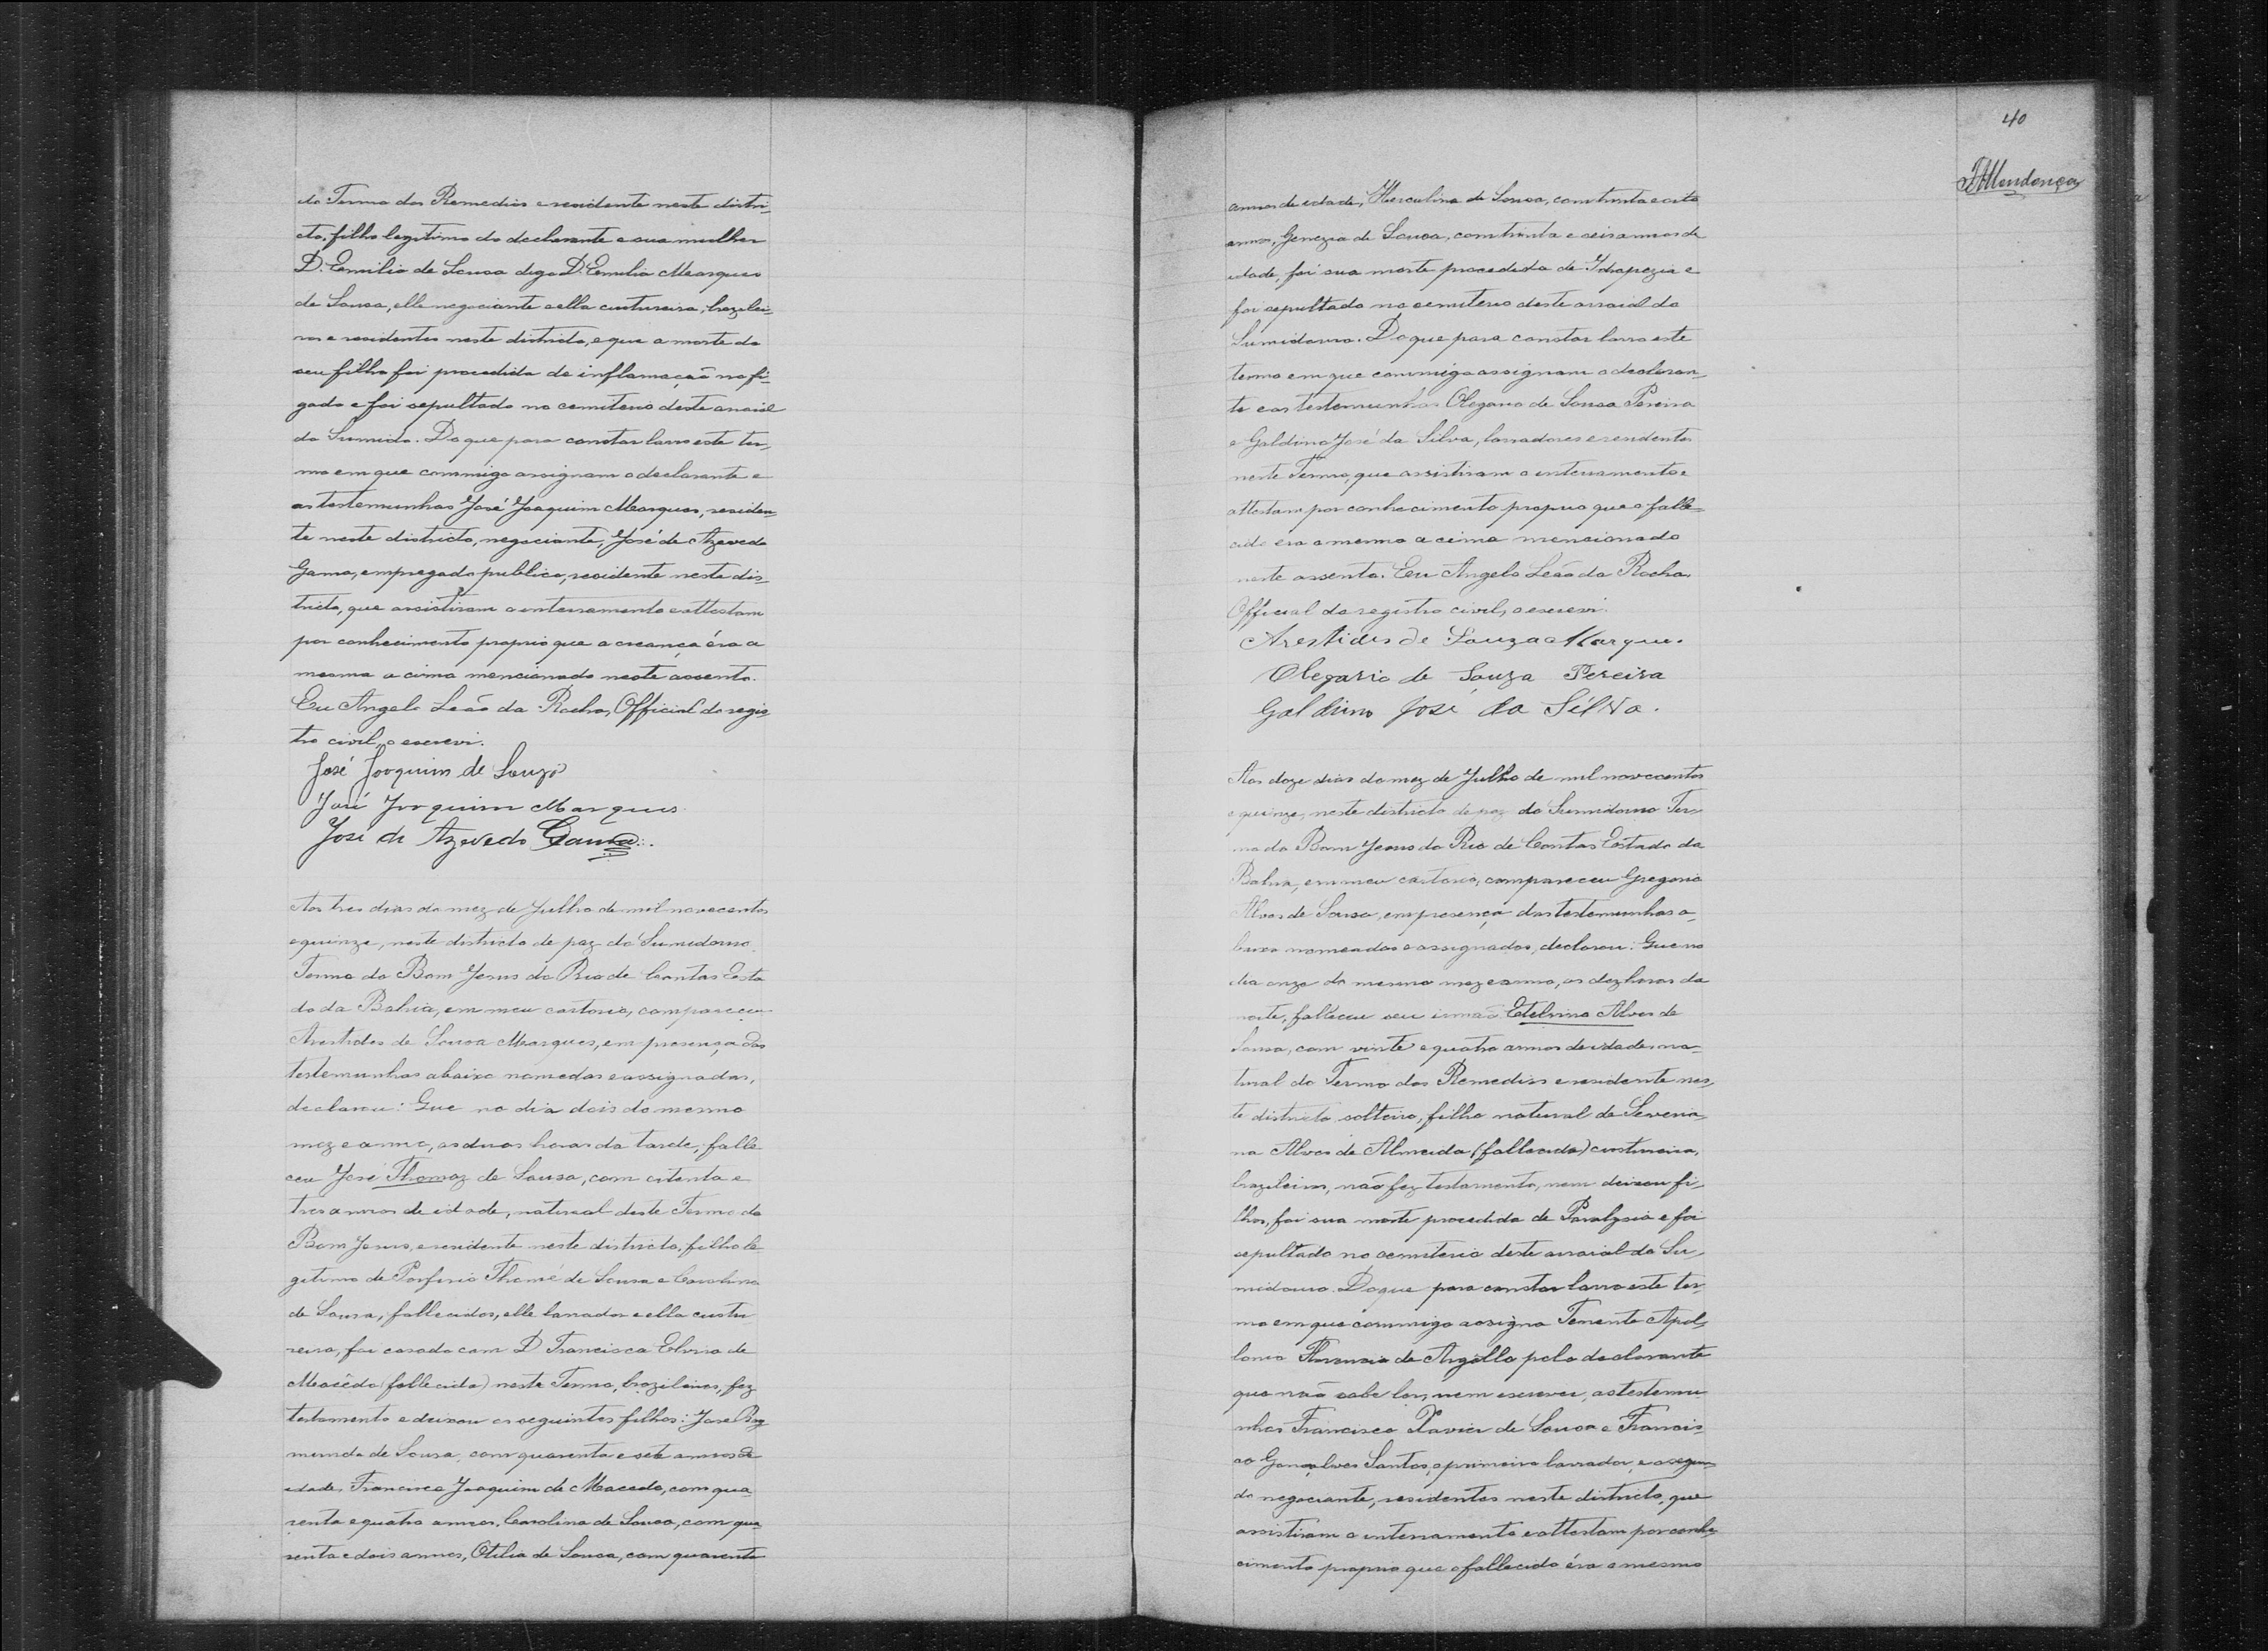 do Termo dos Remedios e residente neste distri-
cto, filho legitimo do declarante e sua mulher
D. Emilia de Sousa digo D. Emilia Marques
de Sousa, elle negociante e ella custureira, brazilei-
ros e residentes neste districto, e que a morte do
seu filho foi procedida de inflamação no fi-
gado e foi sepultado no cemiterio deste arraial
do Sumido. Do que para constar lavro este ter-
mo em que commigo assignam o declarante e
as testemunhas José Joaquim Marques, residen-
te neste districto, negociante, José de Azevedo
Gama, empregado publico, residente neste dis-
tricto, que assistiram o enterramento e attestam
por conhecimento proprio que a creança éra a
mesma a cima mencionado neste assento.
Eu Angelo Leão da Rocha, Official do regis-
tro civil, o escrevi.
José Joaquim de Souza
José Joaquim Marques
José de Azevedo Gama
Aos tres dias do mez de Julho de mil novecentos
e quinze, neste districto de paz do Sumidouro
Termo do Bom Jesus do Rio de Contas Esta
do da Bahia, em meu cartorio, compareceu
Arestides de Sousa Marques, em presença das
testemunhas abaixo nomedas e assignadas,
declarou: Que no dia dois do mesmo
mez e anno, as duas horas da tarde, falle
ceu José Thomaz de Sousa, com oitenta e
tres annos de idade, natural deste Termo do
Bom Jesus, e residente neste districto, filho le
gitimo de Porfirio Thomé de Sousa e Carolina
de Sousa, fallecidos, elle lavrador e ella custu
reira, foi casado com D. Francisca Elvira de
Macêdo (fallecida) neste Termo, brazileiros, fez
testamento e deixou os seguintes filhos: José Ray
mundo de Sousa, com quarenta e sete annos de
idade, Francisco Joaquim de Macedo, com qua
renta e quatro annos, Carolina de Sousa, com qua
renta e dois annos, Otilia de Sousa, com quarenta
40
Mendonça
annos de idade, Herculina de Sousa, com trinta e oito
annos, Genezia de Sousa, com trinta e seis annos de
idade, foi sua morte procedida de Idropezia e
foi sepultado no cemiterio deste arraial do
Sumidouro. Do que para constar lavro este
termo em que commigo assignam o declaran-
te e as testemunhas Olegario de Sousa Pereira
e Galdino José da Silva, lavradores e residentes
neste Termo, que assistiram o enterramento e
attestam por conhecimento proprio que o falle-
cido era o mesmo a cima mencionado
neste assento. Eu Angelo Leão da Rocha
Official do registro civil, o escrevi.
Arestides de Souza Marques.
Olegario de Souza Pereira
Galdino José da Silva.
Aos doze dias do mez de Julho de mil novecentos
e quinze, neste districto de paz do Sumidouro Ter-
mo do Bom Jesus do Rio de Contas Estado da
Bahia, em meu cartorio, compareceu Gregorio
Alves de Sousa, em presença das testemunhas a-
baixo nomeadas e assignadas, declarou: Que no
dia onze do mesmo mez e anno, as dez horas da
noite, falleceu seu irmão Etelvino Alves de
Sousa, com vinte e quatro annos de idade, na-
tural do Termo dos Remedios e residente nes-
te districto solteiro, filho natural de Severia-
na Alves de Almeida (fallecida) custureira,
brazileiros, não fez testamento, nem deixou fi-
lhos, foi sua morte procedida de Paralysia e foi
sepultado no cemiterio deste arraial do Su-
midouro. Do que para constar lavro este ter-
mo em que commigo assigna Tenente Apol-
lonio Florencio de Argollo pelo declarante
que não sabe ler, nem escrever, as testemu-
nhas Francisco Xavier de Sousa e Francis-
co Gonçalves Santos, o primeiro lavrador, e o segun-
do negociante, residentes neste districto, que
assistiram o enterramento e attestam por conhe-
cimento proprio que o fallecido éra o mesmo